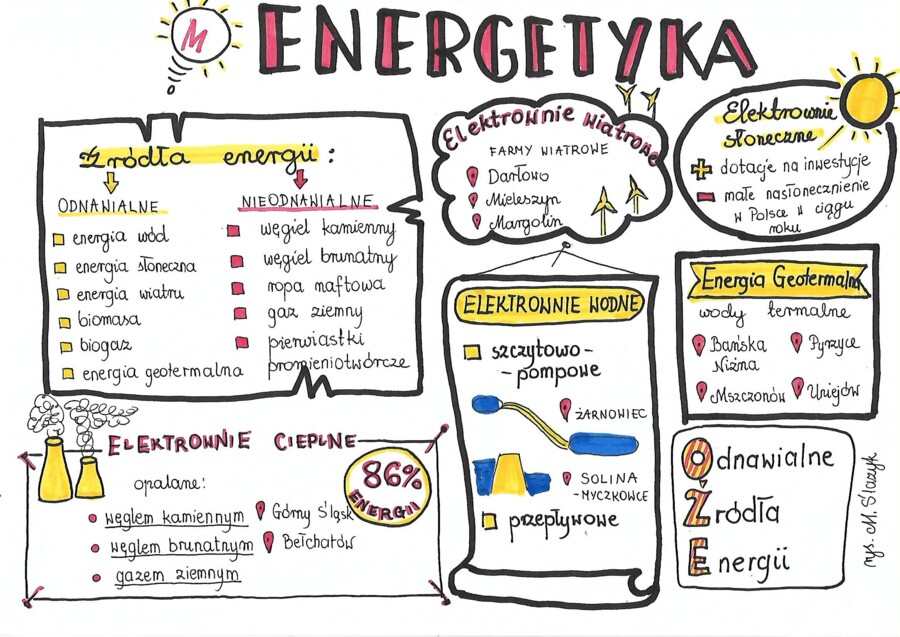 M
ENERGETYKA
Źródła energii:
ODNAWIALNE
energia wód
energia słoneczna
energia wiatru
biomasa
biogaz
energia geotermalna
NIEODNAWIALNE
węgiel kamienny
węgiel brunatny
ropa naftowa
gaz ziemny
pierwiastki
promieniotwórcze
Elektrownie wiatrowe
FARMY WIATROWE
Darłowo
Mieleszyn
Margolin
Elektrownie
słoneczne
+ dotacje na inwestycje
- małe nasłonecznienie
w Polsce w ciągu
roku
ELEKTROWNIE WODNE
szczytowo-
-pompowe
ŻARNOWIEC
SOLINA
-MYCZKOWCE
przepływowe
Energia Geotermalna
wody termalne
Bańska
Niżna
Pyrzyce
Mszczonów
Uniejów
ELEKTROWNIE CIEPLNE
86%
ENERGII
opalane:
węglem kamiennym
Górny Śląsk
węglem brunatnym
Bełchatów
gazem ziemnym
Odnawialne
Źródła
Energii
rys. M. Ślarzyk